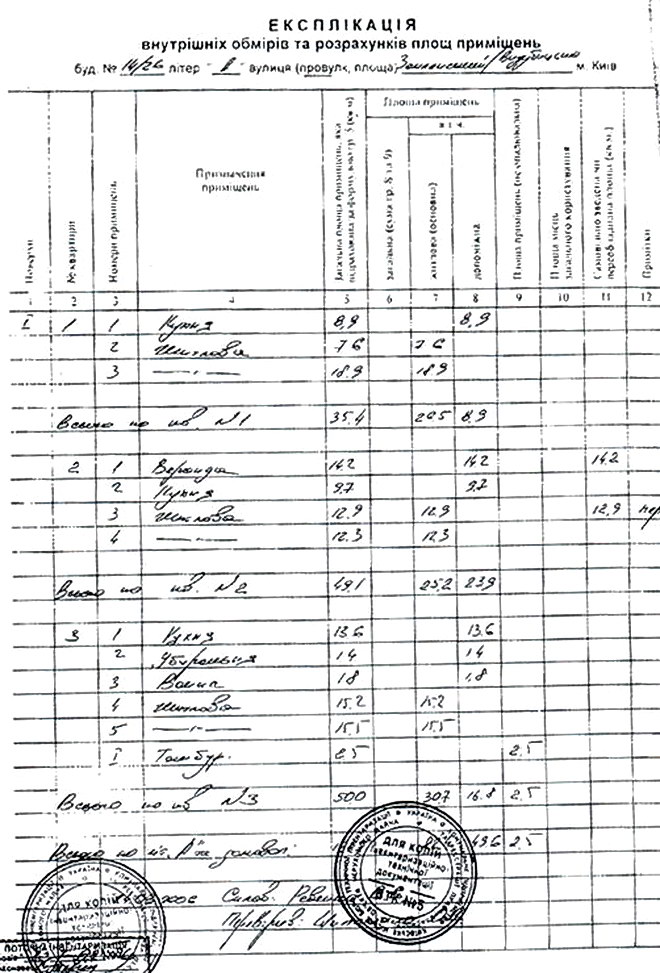 ЕКСПЛІКАЦІЯ
внутрішніх обмірів та розрахунків площ приміщень
буд. № 14/26 літер " В " вулиця (провулк, площа) м. Київ
Поверхи
№ квартири
Номери приміщень
Призначення приміщень
Загальна площа приміщень, яка
Площа приміщень
в т.ч.
загальна (сума гр. 8 та 9)
житлова (основна)
допоміжна
Площа приміщень (неопалювальна)
Площа місць загального користування
Самовільно зведена чи переобладнана площа (кв.м.)
Примітки
1 2 3 4 5 6 7 8 9 10 11 12
I 1 1 Кухня 8,9 8,9
2 Житлова 7.6 7.6
3 —"— 18.9 18.9
Всього по кв. №1 35.4 26.5 8.9
2 1 Веранда 14.2 14.2 14.2
2 Кухня 9.7 9.7
3 Житлова 12.9 12.9 12,9 пер
4 —"— 12.3 12.3
Всього по кв. №2 49.1 25.2 23.9
3 1 Кухня 13.6 13.6
2 Убиральня 1.4 1.4
3 Ванна 1.8 1.8
4 Житлова 15.2 15.2
5 —"— 15.5 15.5
I Тамбур. 2.5 2.5
Всього по кв №3 50.0 30.7 16.8 2.5
Всього по літ. "В" 49.6 2.5
ДЛЯ КОПІЙ
інвентаризаційної
технічної
документації
БТІ №5
ДЛЯ КОПІЙ
інвентаризаційної
Перевірив:
ПОТОЧНА ІНВЕНТАРИЗАЦІЯ